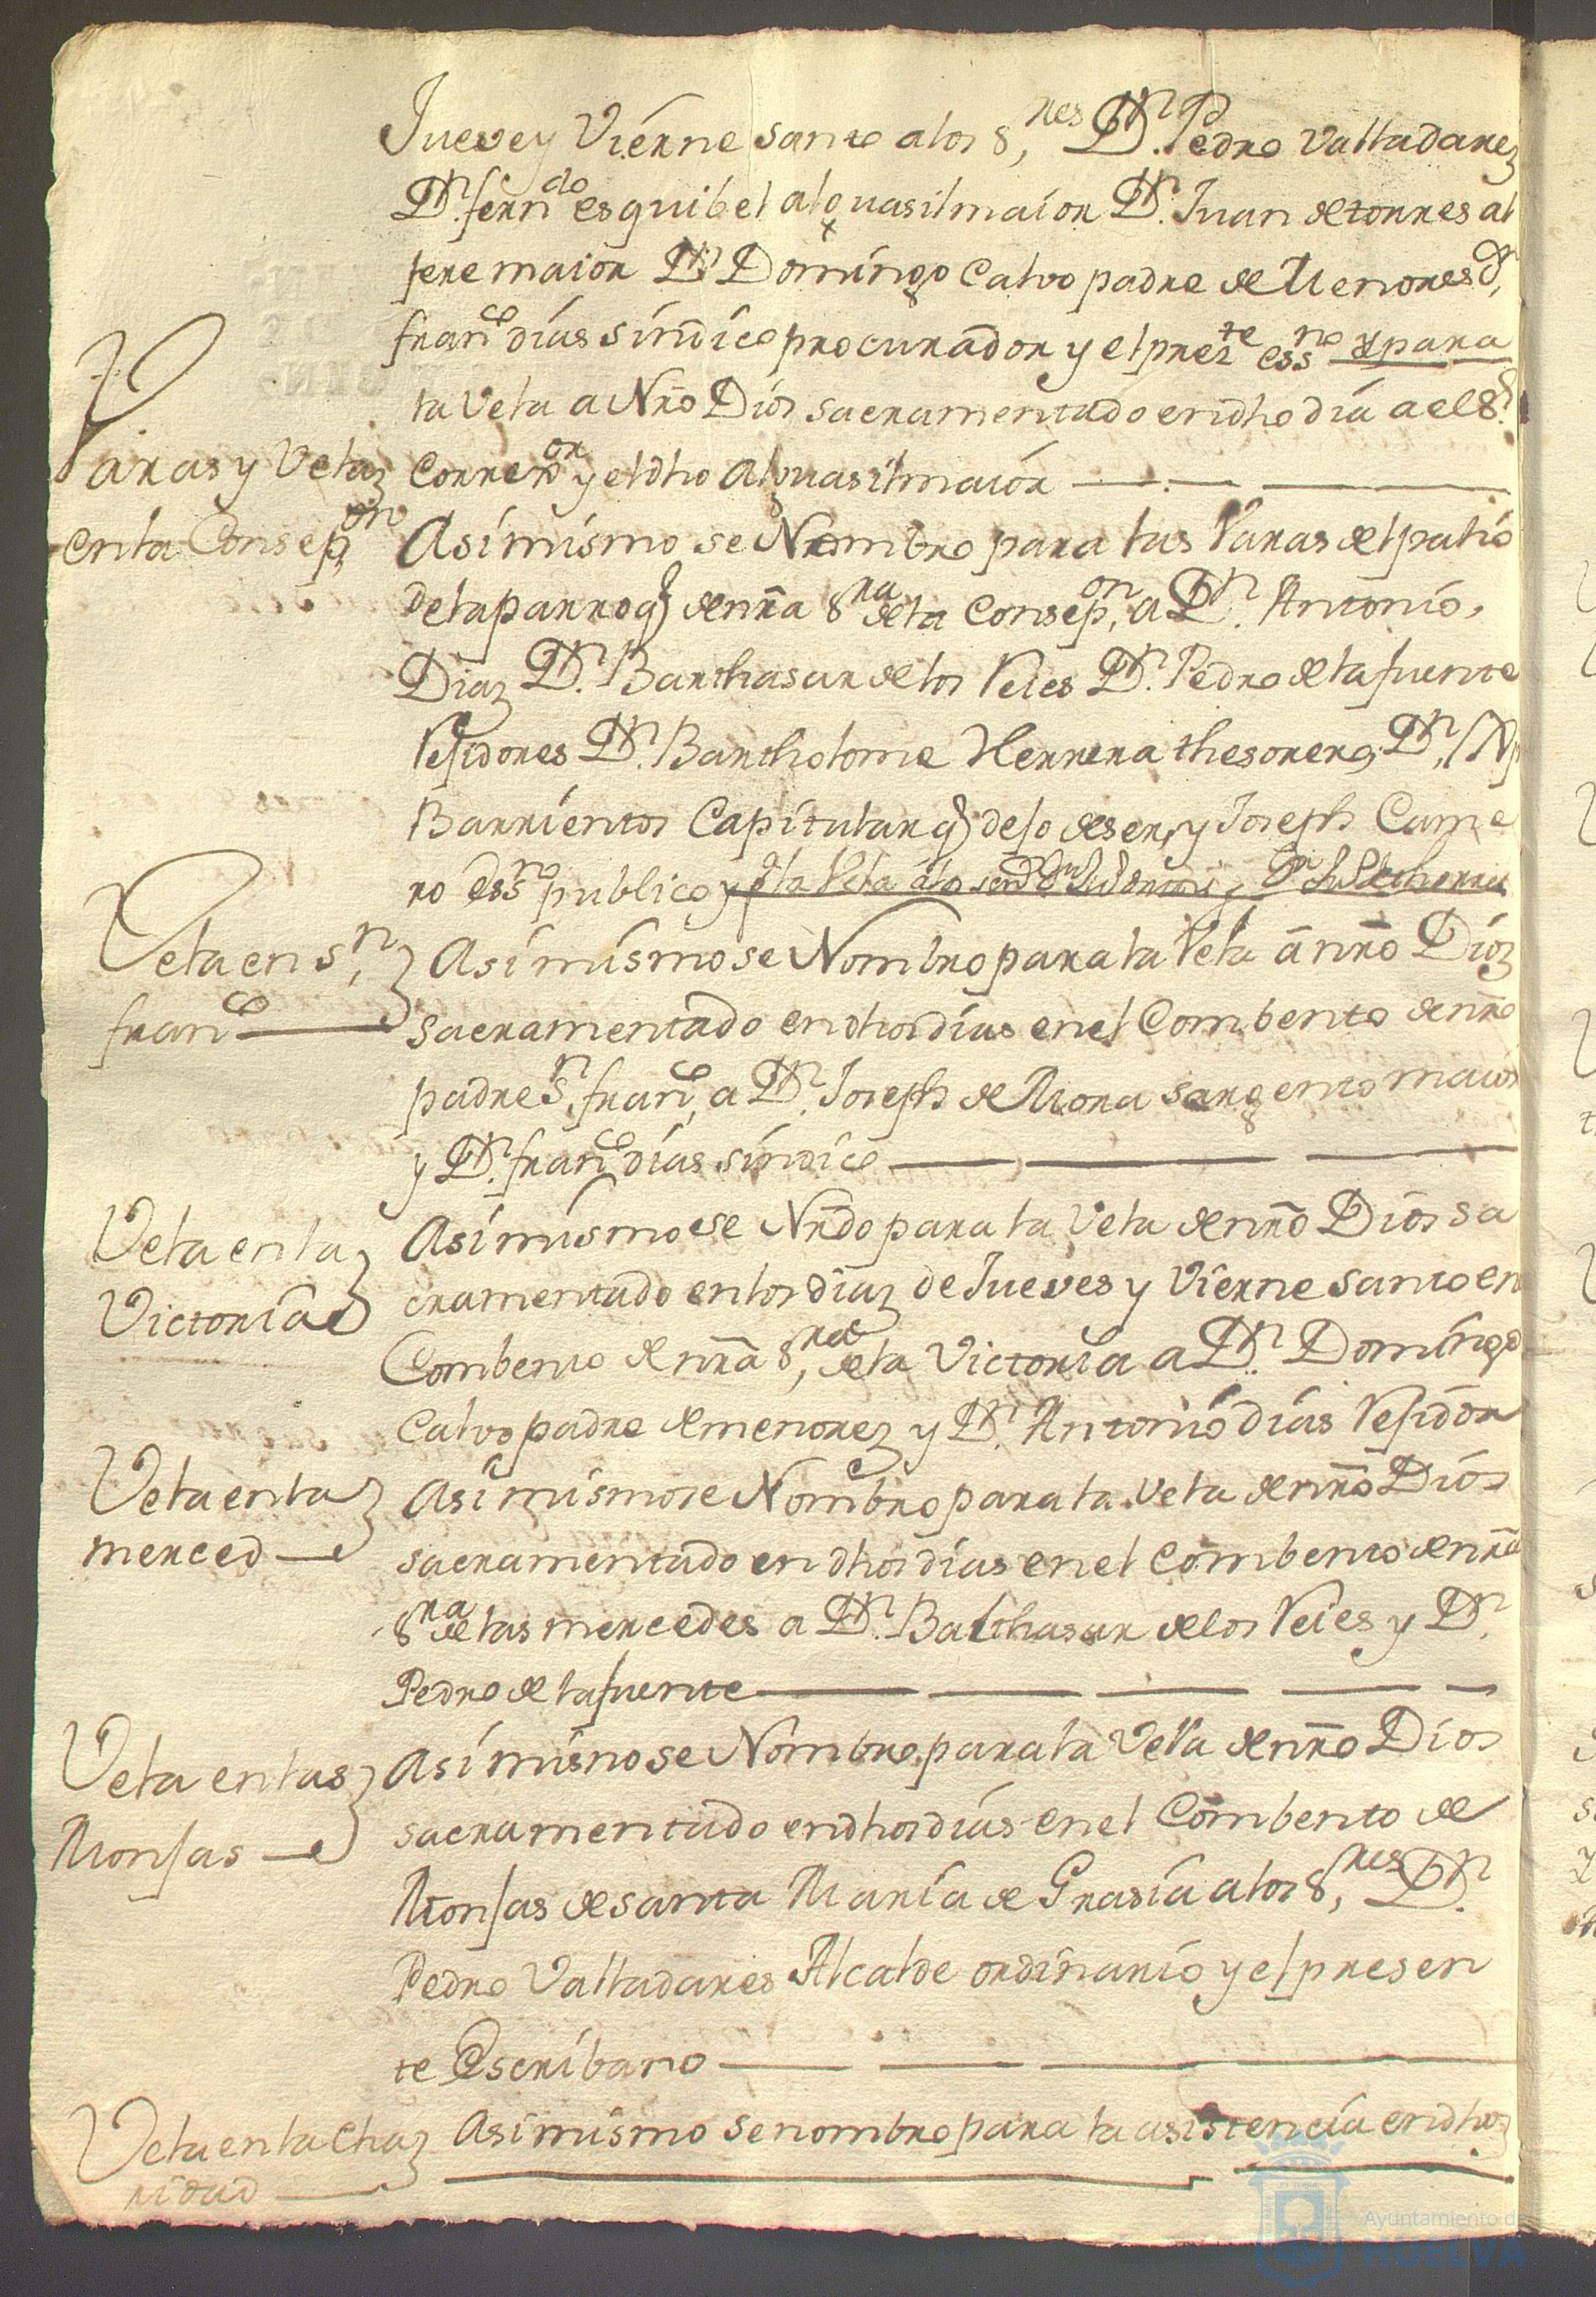 Jueve y Vierne Santo a los S.res D.n Pedro Valladares
D.n fern.do esquibel alguasil maior D.n Juan de torres al
fere maior D.n Domingo Calvo padre de Menores D.n
fran.co dias sindico procurador y el prez.te ess.no y para
la Vela a Nro Dios sacramentado en dho dia a el S.r
Varas y Velas
Corre.or y el dho Alguasil maior
en la Consep.on
Asimismo se Nombro para las Varas del patio
de la parroq.l de nra S.ra de la Consep.on a D.n Antonio
Diaz D.n Barthasar de los Reies D.n Pedro de la fuente
Rejidores D.n Bartholome Herrera thesorero D.n
Barrientos Capitular q. dejo de ser, y Joseph Came
ro ess.no publico y p.a la Vela a los
Vela en S.n
Asimismo se Nombro para la Vela a nro Dios
fran.co
sacramentado en dhos dias en el Combento de nro
padre S.n fran.co a D.n Joseph de Mora sargento maior
y D.n fran.co dias sindico
Vela en la
Asimismo se Nrdo para la Vela de nro Dios sa
Victoria
cramentado en los diaz de Jueves y Vierne santo en
Combento de nra S.ra de la Victoria a D.n Domingo
Calvo padre de menorez y D.n Antonio dias Rejidor
Vela en la
Asimismo se Nombro para la Vela de nro Dios
merced
sacramentado en dhos dias en el Combento de nra
S.ra de las mercedes a D.n Balthasar de los Reies y D.n
Pedro de la fuente
Vela en las
Asimismo se Nombro para la Vela de nro Dios
Monjas
sacramentado en dhos dias en el Combento de
Monjas de santa Maria de Grasia a los S.res D.n
Pedro Valladares Alcalde ordinario y el presen
te Escribano
Vela en la Cha
Asimismo se nombro para la asistencia en dhos
ridad
Ayuntamiento de
HUELVA